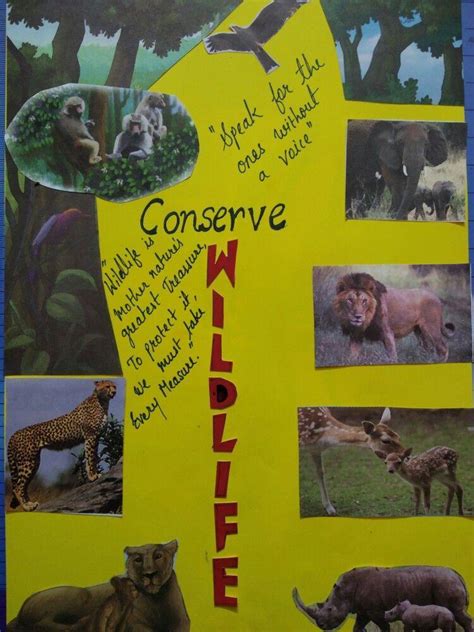 "Speak for the
ones without
a voice"
Conserve
WILDLIFE
"Wildlife is
Mother nature's
greatest Treasure,
To protect it,
we must take
Every Measure."